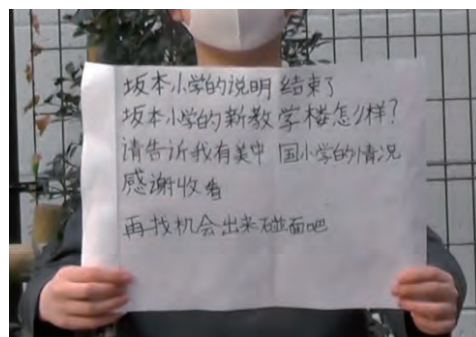 坂本小学的说明 结束了
坂本小学的新教学楼怎么样?
请告诉我有美中 国小学的情况
感谢收看
再找机会出来碰面吧